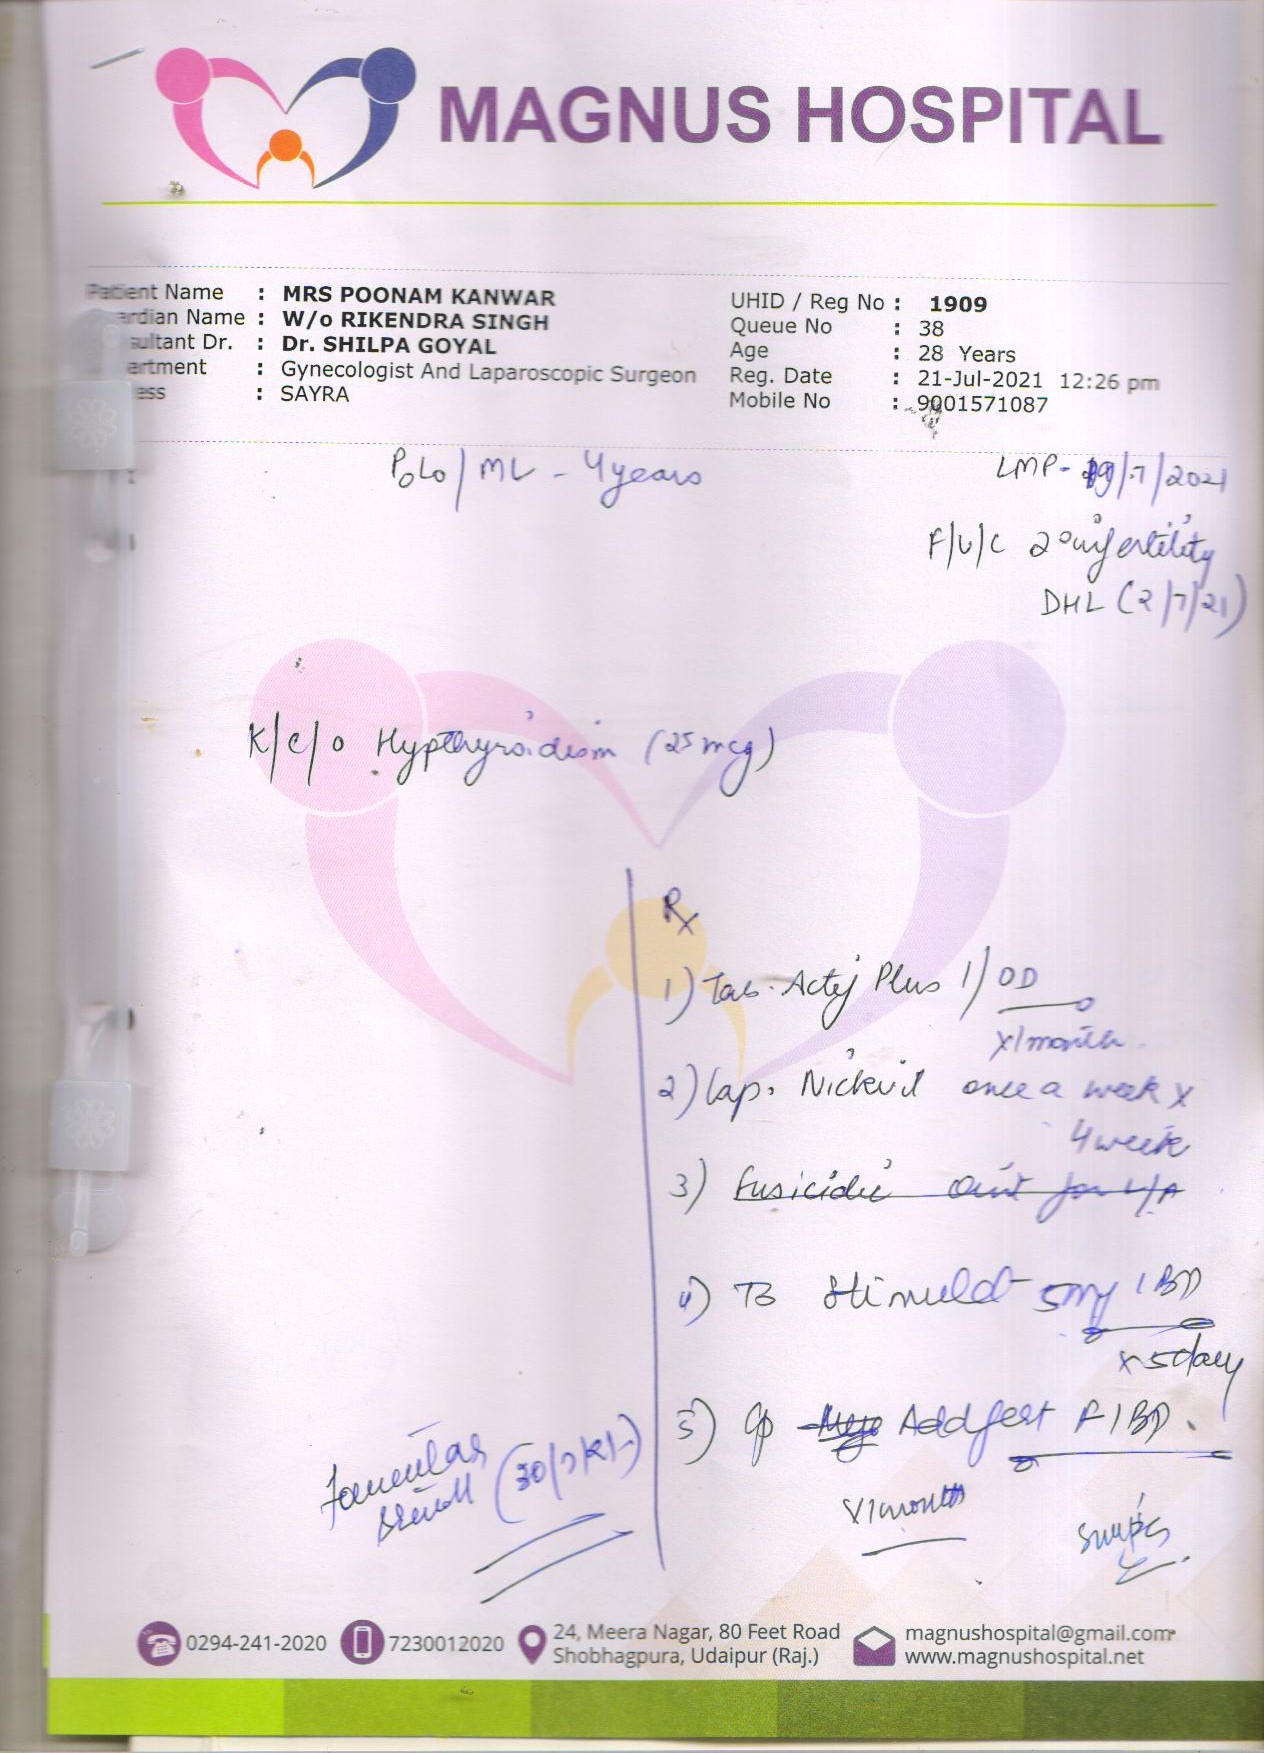 MAGNUS HOSPITAL
Patient Name : MRS POONAM KANWAR
rdian Name : W/o RIKENDRA SINGH
sultant Dr. : Dr. SHILPA GOYAL
artment : Gynecologist And Laparoscopic Surgeon
ess : SAYRA
UHID / Reg No : 1909
Queue No : 38
Age : 28 Years
Reg. Date : 21-Jul-2021 12:26 pm
Mobile No : 9001571087
P0L0 / ML - 4 years
LMP- 19/7/2021
F/U/C 2° infertility
DHL (2/7/21)
K/C/O Hypthyroidism (25 mcg)
Rx
1) Tab. Actej Plus 1/OD
x 1 month
2) Cap. Nickvit once a week x
4 week
3) Fusicidic Oint for L/A
4) Tb Stimulet 5mg 1 BD
x 5 day
5) Cp Addfert F 1 BD.
x 1 month
0294-241-2020
7230012020
24, Meera Nagar, 80 Feet Road
Shobhagpura, Udaipur (Raj.)
magnushospital@gmail.com
www.magnushospital.net